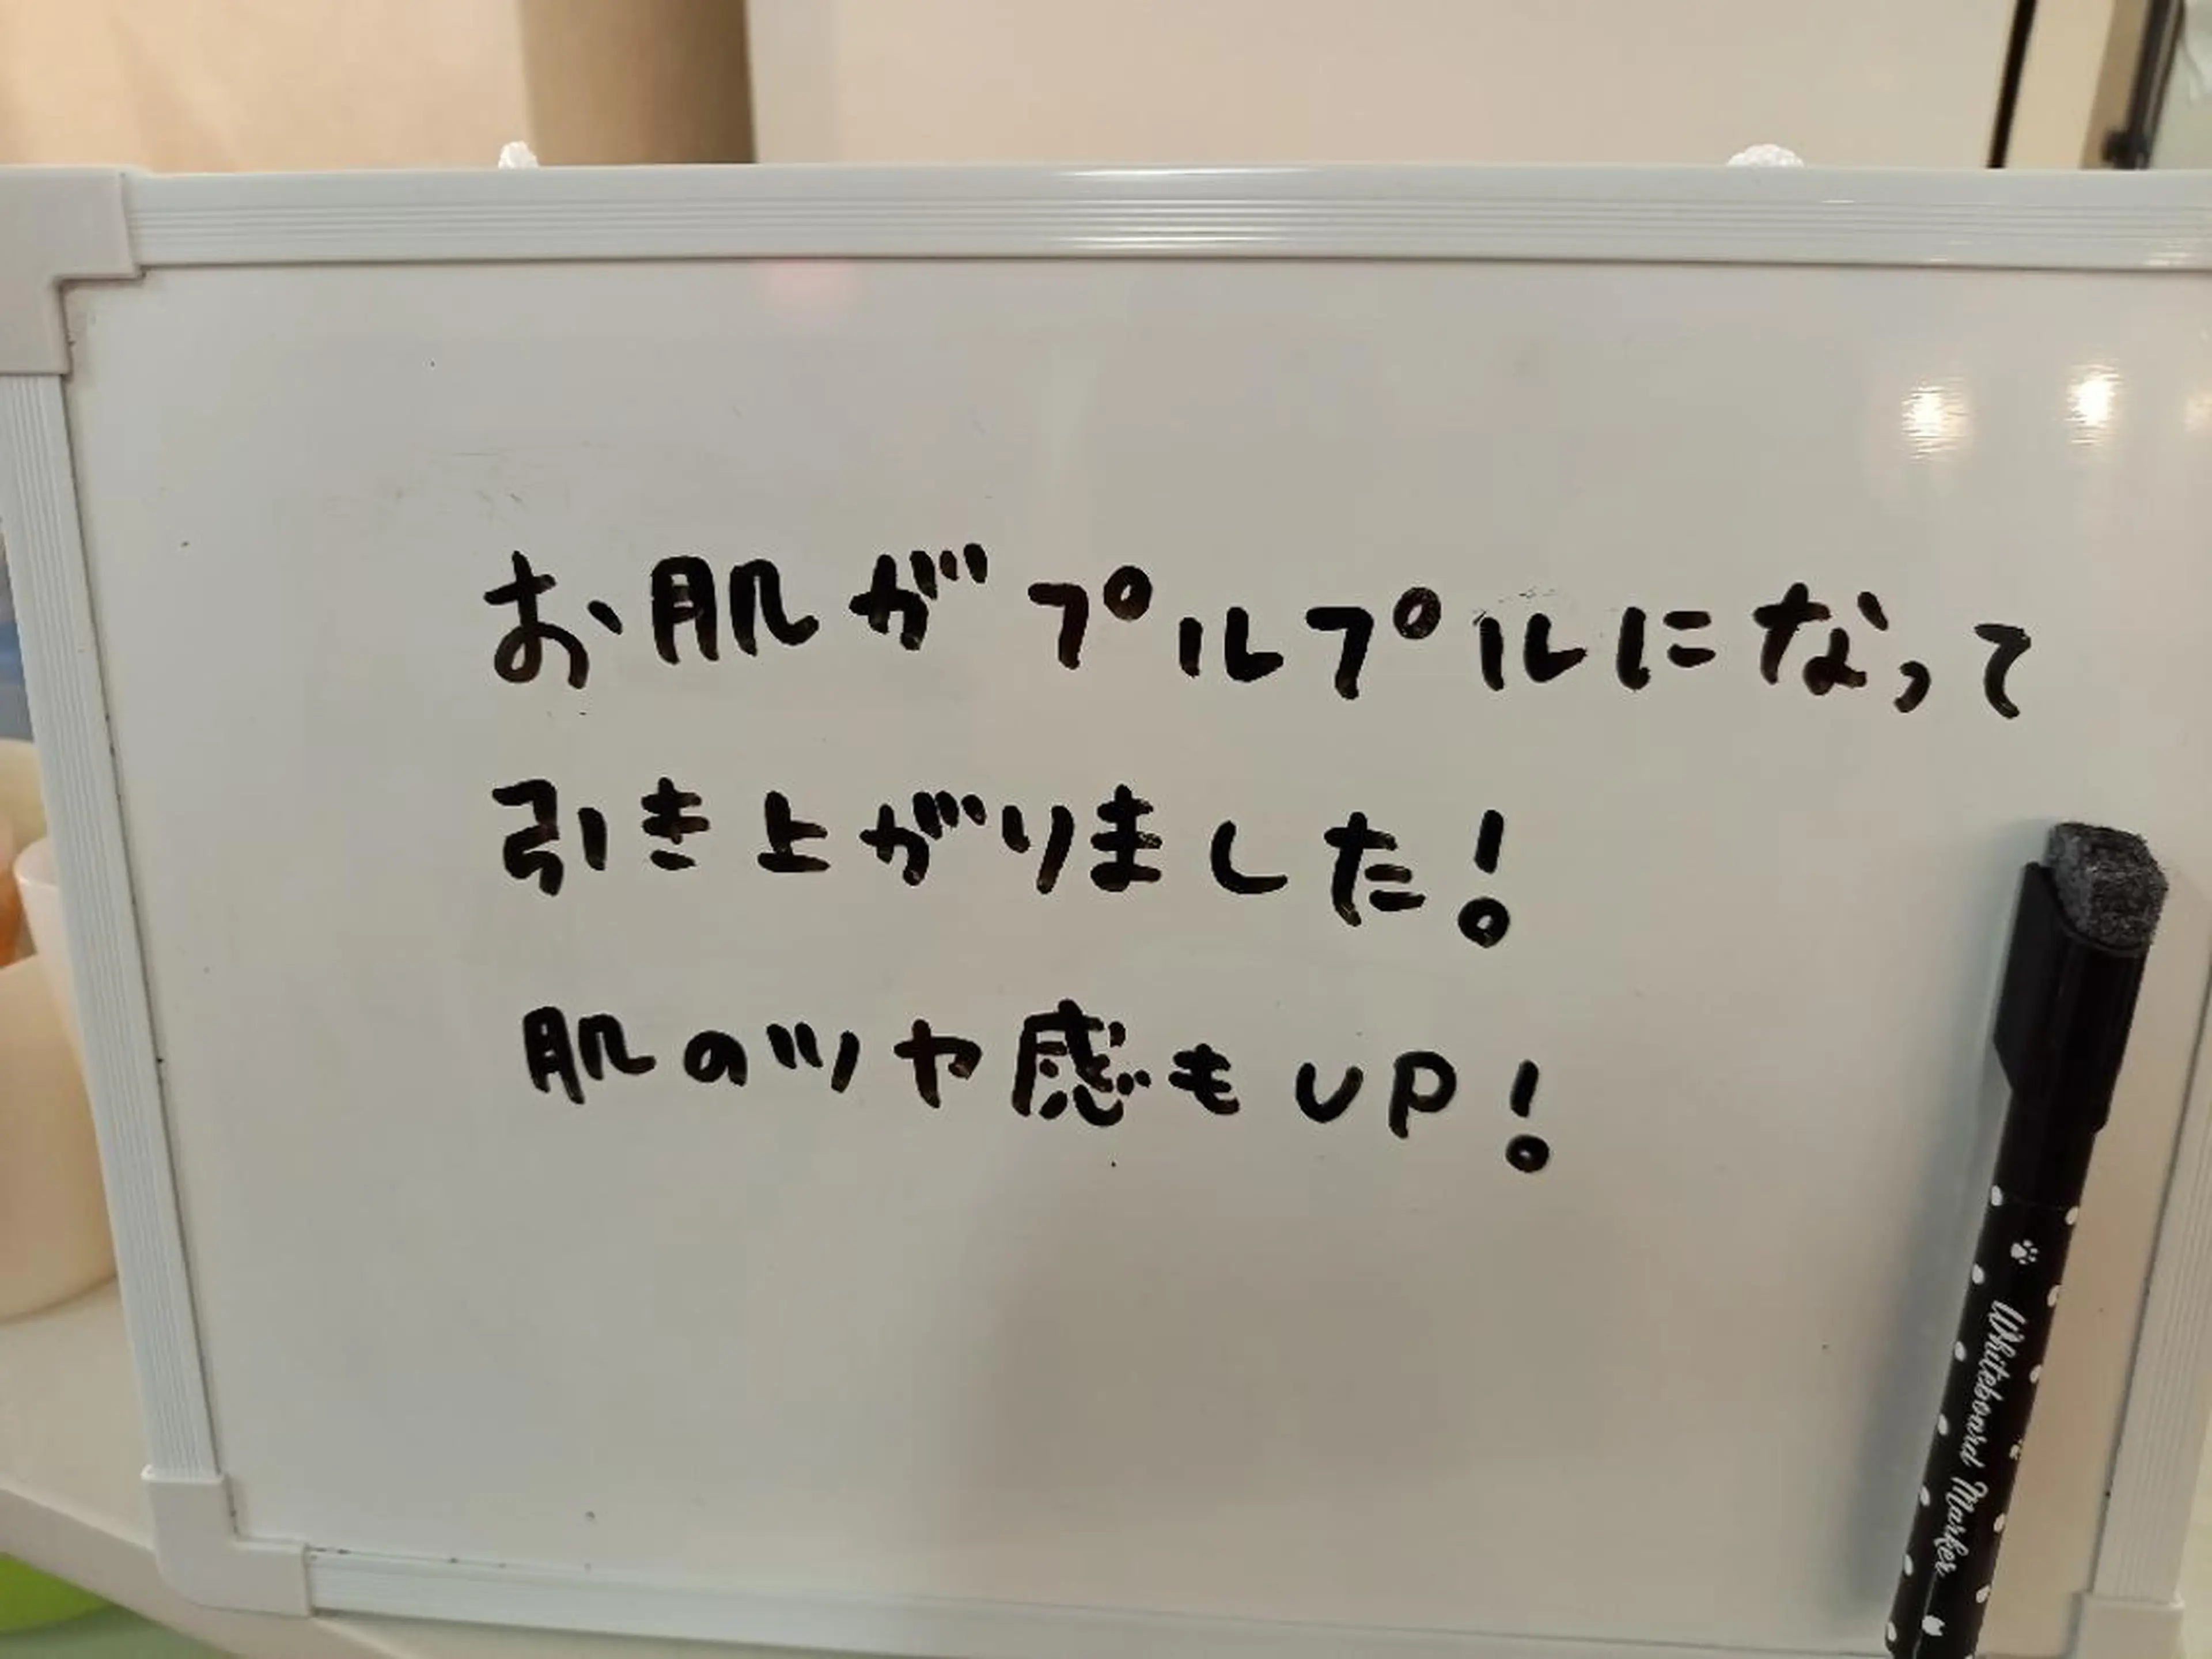 お肌がプルプルになって
引き上がりました!
肌のツヤ感もUP!
Whiteboard Marker